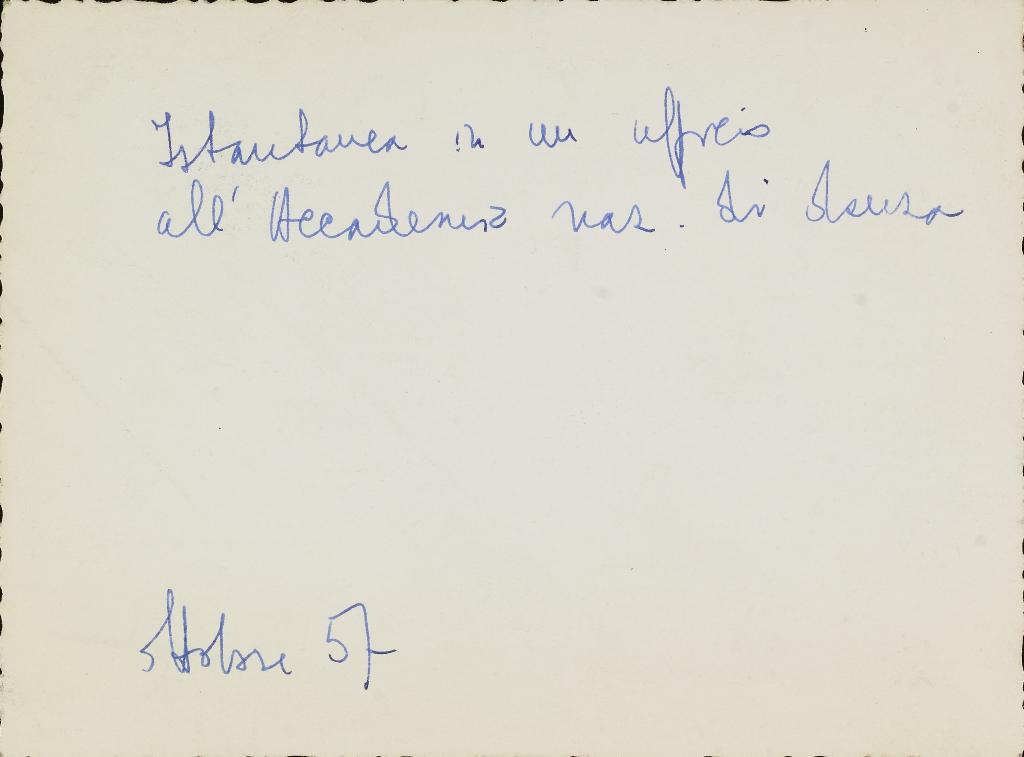 Istantanea in un ufficio
all' Accademia naz. di danza
ottobre 57